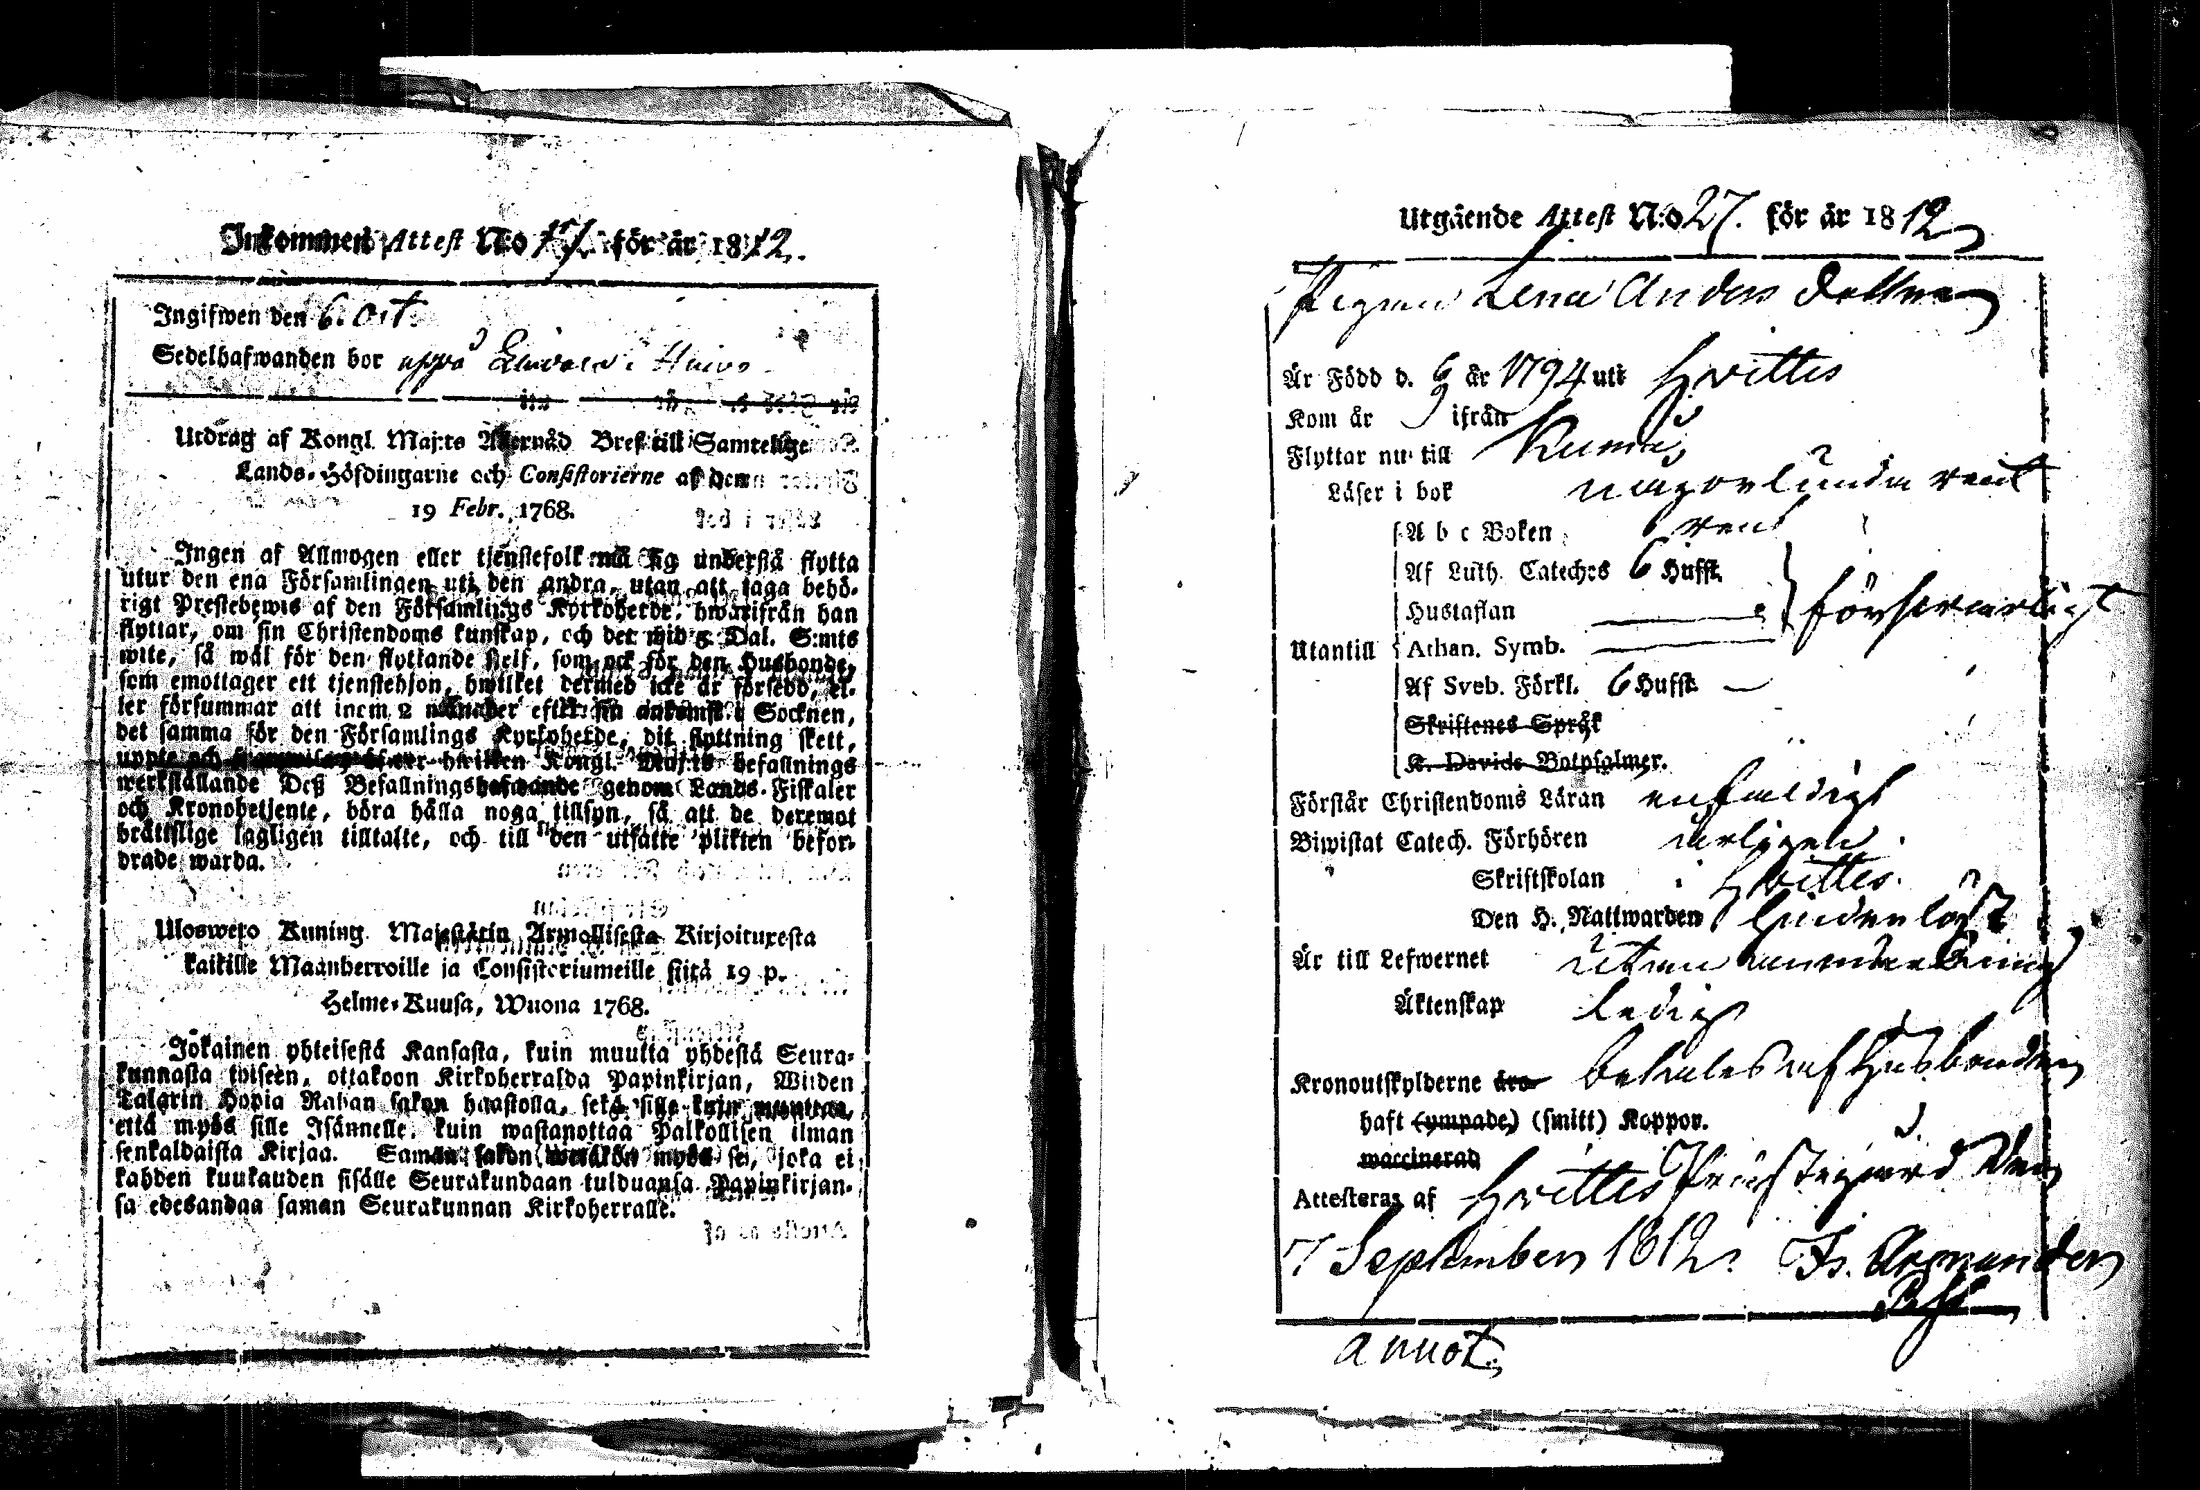 Inkommen Attest N:o 17. för år 1812.
Ingifwen den 6. Oct.
Sedelhafwanden bor uppå
Utdrag af Kongl. Maj:ts Bref till Samtelige
Lands-Höfdingarne och Consistorierne af den
19 Febr. 1768.
Ingen af Allmogen eller tjenstefolk må sig understå flytta
utur den ena Församlingen uti den andra, utan att taga behö-
rigt Prestebewis af den Församlings Kyrkoherde, hwarifrån han
flyttar, om sin Christendoms kunskap, och det wid 5 Dal. S:mts
wite, så wäl för den flyttande sielf, som ock för den Husbonde,
som emottager ett tjenstehjon, hwilket dermed icke är försedd, el-
ler försummar att inom 2 månader efter sin ankomst i Socknen,
det samma för den Församlings Kyrkoherde, dit flyttning skett,
uppte och hwilken Kongl. Maj:ts befallnings
werkställande Deß Befallningshafwande genom Lands-Fiskaler
och Kronobetjente, böra hålla noga tillsyn, så att de deremot
brättslige lagligen tilltalte, och till den utsatte plikten befor-
drade warda.
Ulosweto Kuning. Majestätin Armollisesta Kirjoituxesta
kaikille Maanherroille ja Consistoriumeille siitä 19 p.
Helme-Kuusa, Wuona 1768.
Jokainen yhteisestä Kansasta, kuin muutta yhdestä Seura-
kunnasta toiseen, ottakoon Kirkoherralda Papinkirjan, Wiiden
Talarin Hopia Rahan sakon haastolla, sekä sille kuin muuttaa,
että myös sille Isännelle, kuin wastanottaa Palkollisen ilman
senkaldaista Kirjaa. Saman sakon wetäkön myös se, joka ei
kahden kuukauden sisälle Seurakundaan tulduansa Papinkirjan-
sa edesandaa saman Seurakunnan Kirkoherralle.
Utgående Attest N:o 27. för år 1812
Pigan Lena Anders dotter
Är Född d. 6/9 år 1794 uti Hvittis
Kom år ifrån
Flyttar nu till Kumo
Läser i bok någorlunda rent
A b c Boken rent
Af Luth. Cateches 6 Hufst.
Hustaflan försvarligt
Utantill Athan. Symb.
Af Sveb. Förkl. 6 Hufst.
Skriftenes Språk
K. Davids Botpsalmer.
Förstår Christendoms Läran enfaldigt
Biwistat Catech. Förhören årligen
Skriftskolan i Hvittis.
Den H. Nattwarden
Är till Lefwernet utan anmärkning
Äktenskap ledig
Kronoutskylderne äro betales af Husbonden
haft (ympade) (smitt) Koppor.
waccinerad
Attesteras af Hvittis Prästegård den
7 September 1812.
annot.